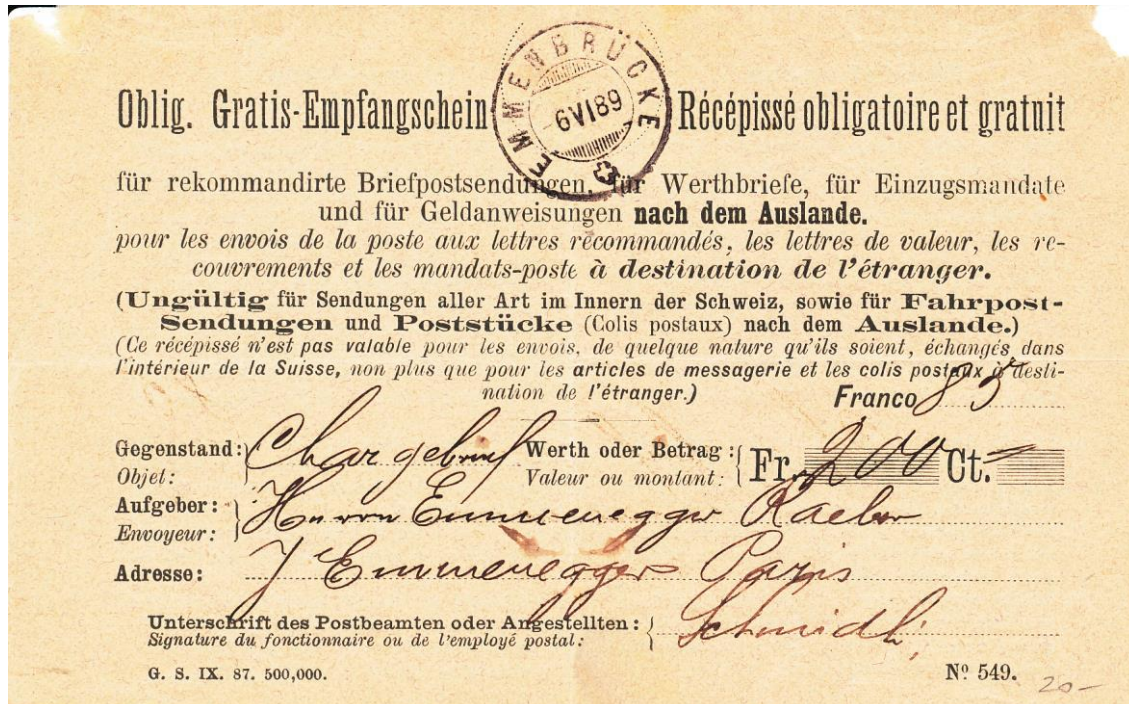 EMMENBRÜCKE
-6VI89
Oblig. Gratis-Empfangschein Récépissé obligatoire et gratuit
für rekommandirte Briefpostsendungen, für Werthbriefe, für Einzugsmandate
und für Geldanweisungen nach dem Auslande.
pour les envois de la poste aux lettres récommandés, les lettres de valeur, les re-
couvrements et les mandats-poste à destination de l'étranger.
(Ungültig für Sendungen aller Art im Innern der Schweiz, sowie für Fahrpost-
Sendungen und Poststücke (Colis postaux) nach dem Auslande.)
(Ce récépissé n'est pas valable pour les envois, de quelque nature qu'ils soient, échangés dans
l'intérieur de la Suisse, non plus que pour les articles de messagerie et les colis postaux à desti-
nation de l'étranger.) Franco 85
Gegenstand: Chargebrief Werth oder Betrag: Fr. 200 Ct. =
Objet: Valeur ou montant:
Aufgeber: Herrn Emmenegger Raeber
Envoyeur:
Adresse: J Emmenegger Paris
Unterschrift des Postbeamten oder Angestellten: Schmidli
Signature du fonctionnaire ou de l'employé postal:
G. S. IX. 87. 500,000. Nº 549.
20-